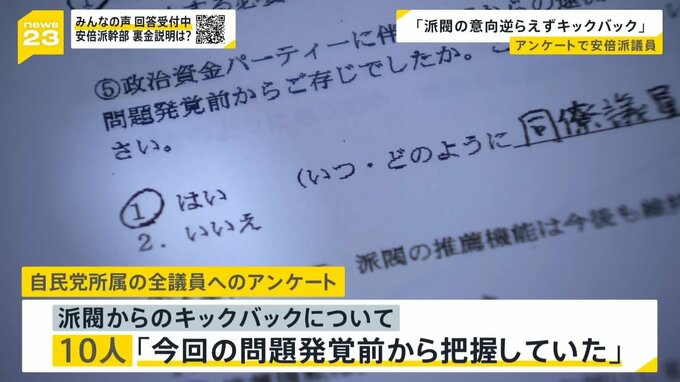 news
23
みんなの声 回答受付中
安倍派幹部 裏金説明は?
「派閥の意向逆らえずキックバック」
アンケートで安倍派議員
⑤政治資金パーティーに伴
問題発覚前からご存じでしたか。
さい。
1 はい
(いつ・どのように 同僚議員
2. いいえ
派閥の推薦機能は今後も
自民党所属の全議員へのアンケート
派閥からのキックバックについて
10人「今回の問題発覚前から把握していた」